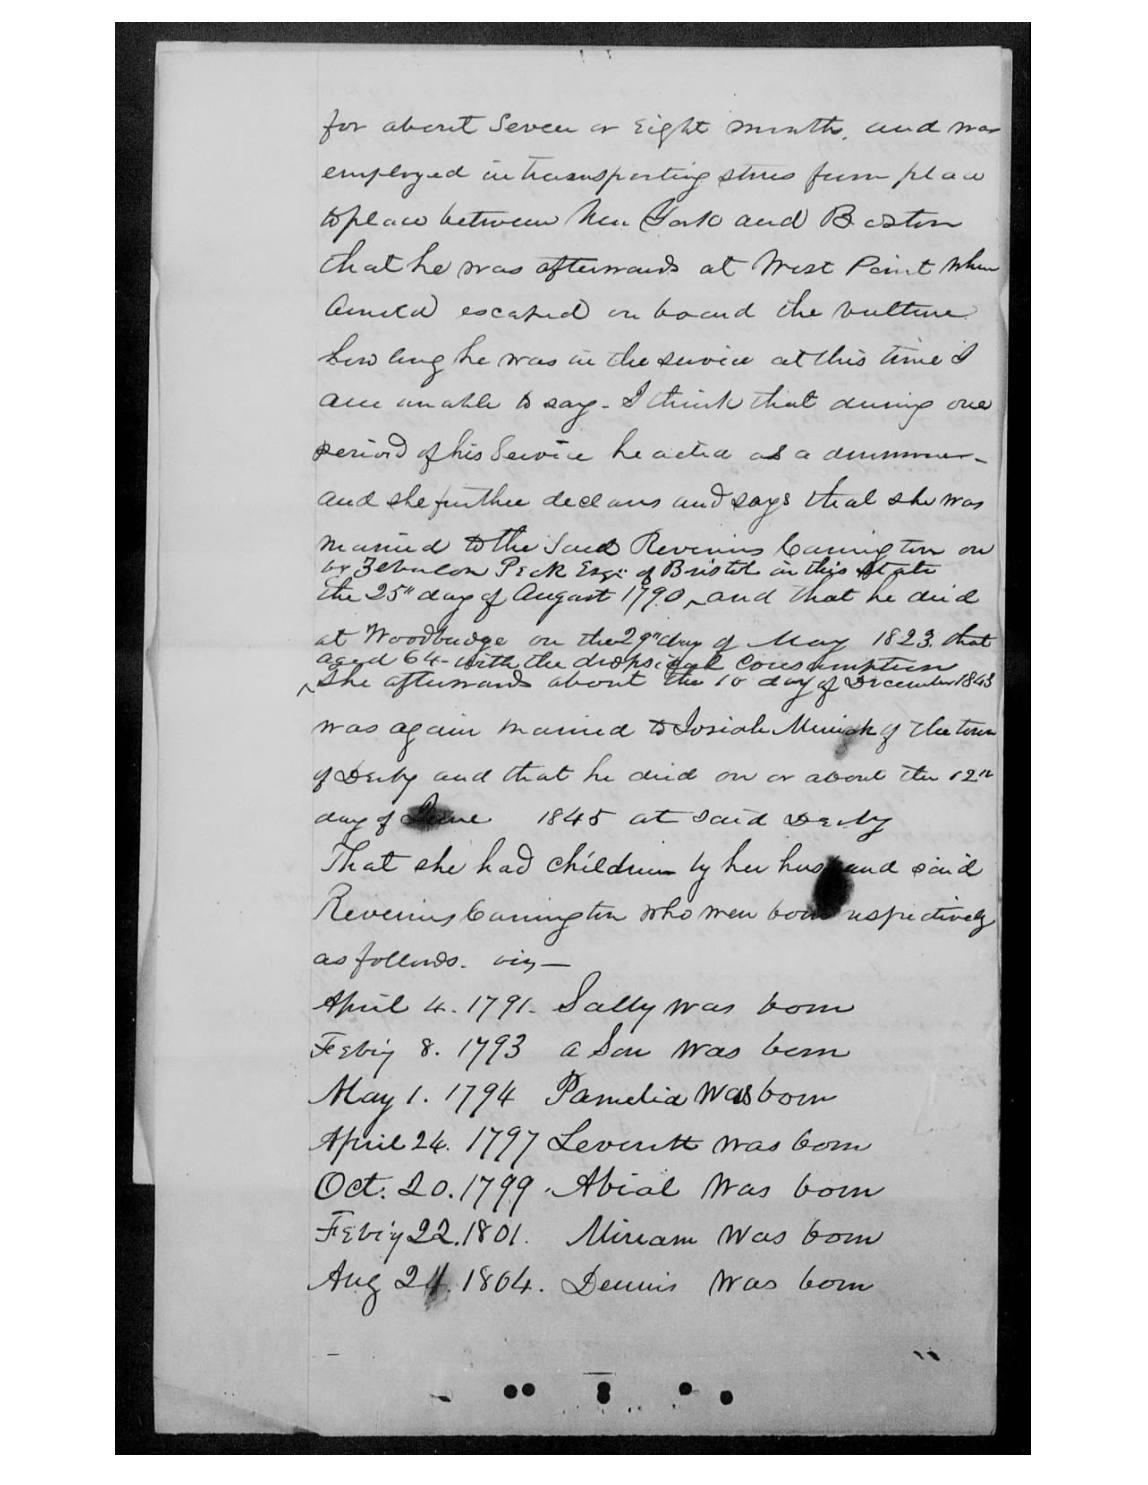 for about Seven or Eight month, and was
employed in transporting stores from place
to place between New York and Boston
that he was afterwards at West Point when
Arnold escaped on board the vulture
how long he was in the service at this time I
am unable to say - I think that during one
period of his Service he acted as a drummer -
and she further declares and says that she was
married to the Said Reverius Carrington on
by Zebulon Peck Esqr. of Bristol in this State
the 25th day of August 1790, and that he died
at Woodbridge on the 29th day of May 1823. that
aged 64 - with the dropsical consumption
She afterwards about the 10 day of December 1843
was again married to Josiah of the town
of Derby and that he died on or about the 12th
day of June 1845 at said Derby
That she had children by her husband said
Reverius Carrington who were born respectively
as follows. viz -
April 4. 1791. Sally was born
Feby 8. 1793 a Son was born
May 1. 1794 Pamelia was born
April 24. 1797 Leveritt was born
Oct. 20. 1799. Abial was born
Feby 22. 1801. Miriam was born
Aug 24. 1804. Dennis was born